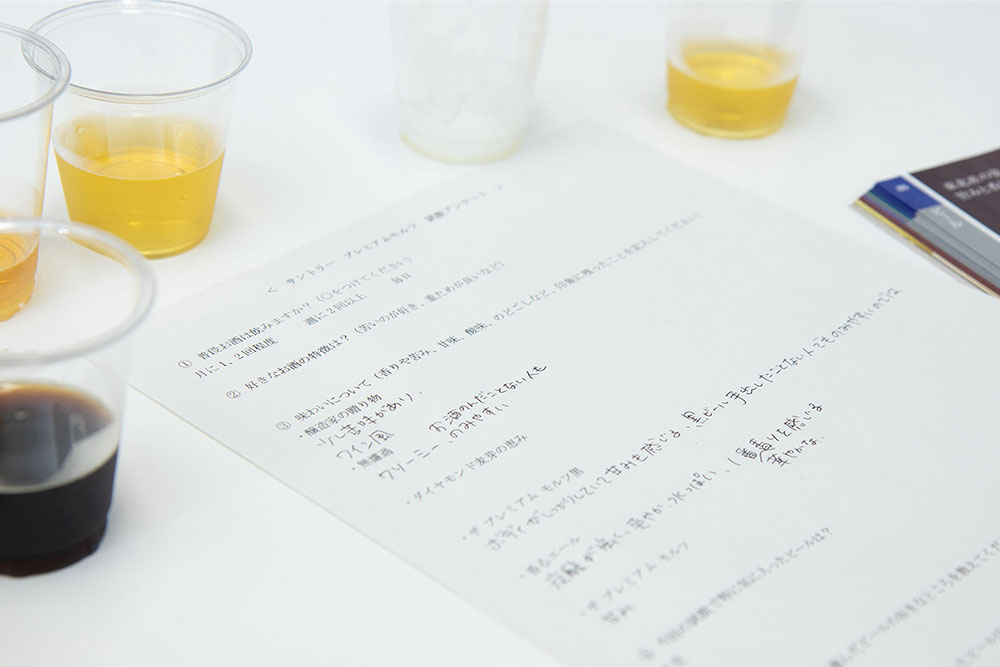 < サントリー プレミアムモルツ 試飲アンケート >
① 普段お酒は飲みますか？（○をつけてください）
月に1、2回程度 週に2回以上 毎日
② 好きなお酒の特徴は？（苦いのが好き、重ためが良いなど）
③ 味わいについて（香りや苦み、甘味、酸味、のどごしなど、印象に残ったことを記入してください）
・醸造家の贈り物
少し苦味があり、
ワイン風 お酒のんだことない人も
・無濾過 のみやすい
クリーミー、
・ダイヤモンド麦芽の恵み
・ザ プレミアム モルツ黒
ボディがしっかりしていて甘みを感じる、黒ビール手出したことない人でものみやすいのでは
・香るエール
炭酸が強く、爽やか、水っぽい、1番香りを感じる
華やかな
・ザ プレミアム モルツ
甘み
④ 今回の試飲で特に気に入ったビールは？
ビールの好きなところを教えてくだ